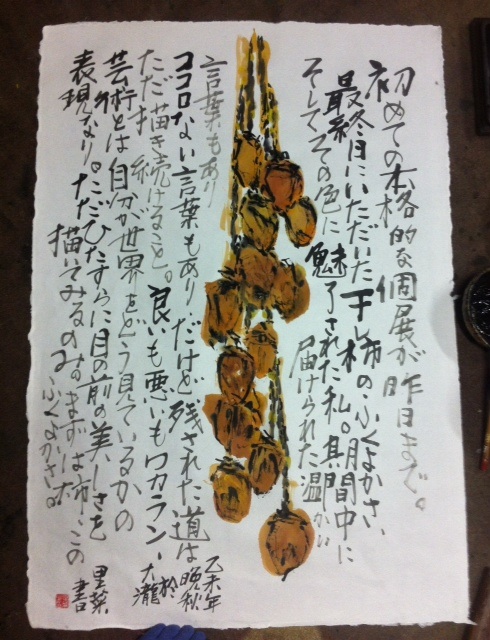 初めての本格的な個展が昨日まで。
最終日にいただいた干し柿のふくよかさ、
そしてその色に魅了された私。其期間中に
届けられた温かい
言葉もあり
ココロない言葉もあり、だけど残された道は
ただ描き続けること。良いも悪いもワカラン、
芸術とは自分が世界をどう見ているかの
表現なり。ただひたすらに目の前の美しさを
描いてみるのみ。まずは柿、この
ふくよかさ。
乙未年
晩秋
於
大瀧
里葉
書